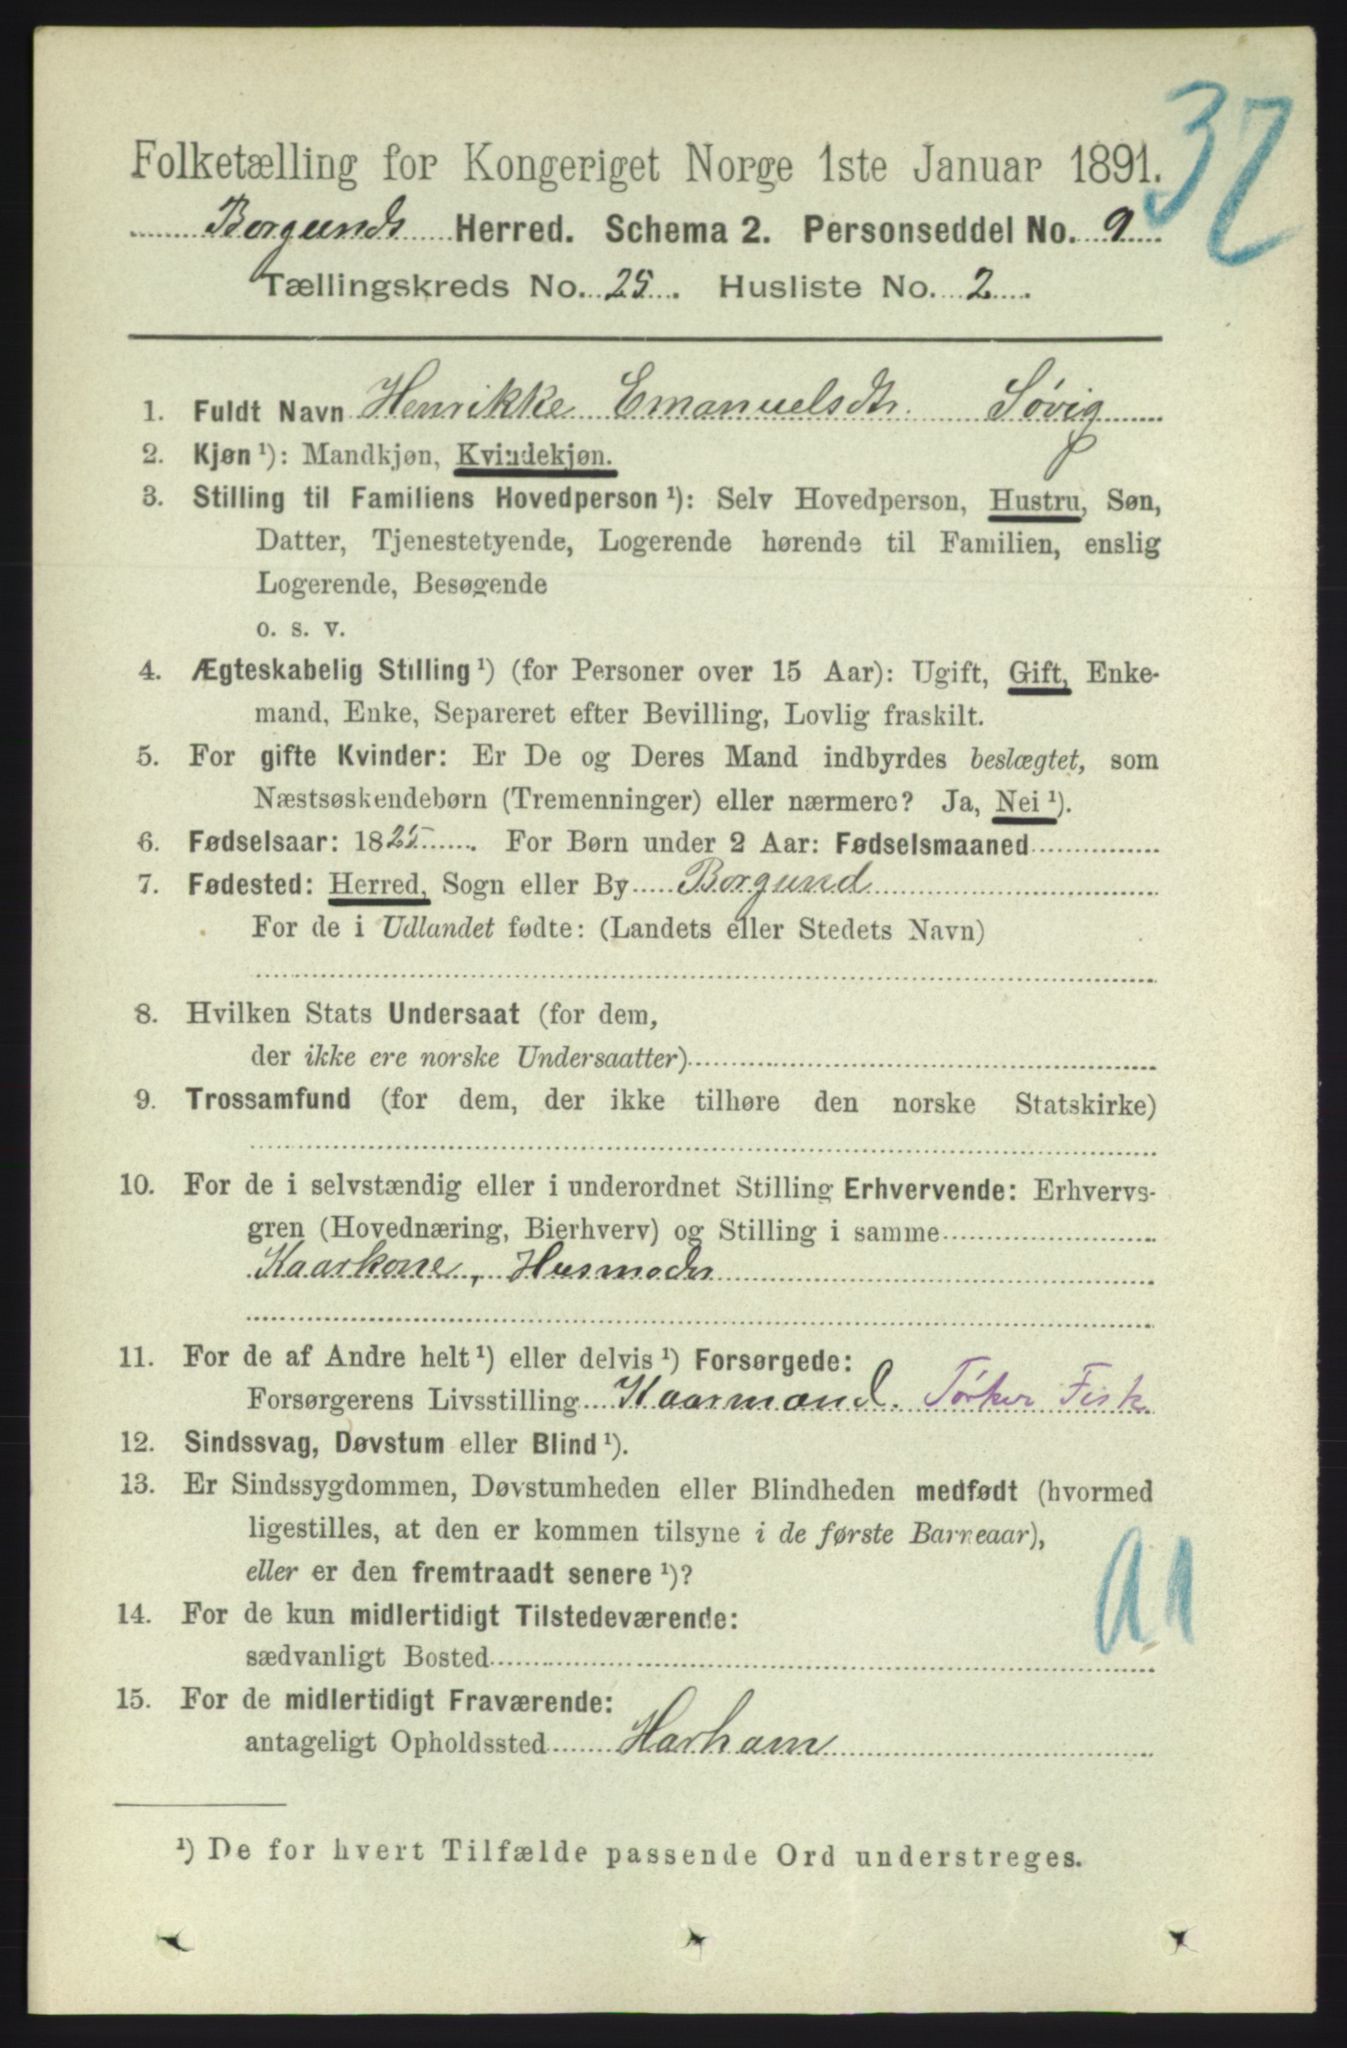 37
Folketælling for Kongeriget Norge 1ste Januar 1891.
Borgunds Herred. Schema 2. Personseddel No. 9
Tællingskreds No. 25. Husliste No. 2.
1. Fuldt Navn Henrikke Emanuelsdtr. Søvig
2. Kjøn ¹): Mandkjøn, Kvindekjøn.
3. Stilling til Familiens Hovedperson ¹): Selv Hovedperson, Hustru, Søn,
Datter, Tjenestetyende, Logerende hørende til Familien, enslig
Logerende, Besøgende
o. s. v.
4. Ægteskabelig Stilling ¹) (for Personer over 15 Aar): Ugift, Gift, Enke-
mand, Enke, Separeret efter Bevilling, Lovlig fraskilt.
5. For gifte Kvinder: Er De og Deres Mand indbyrdes beslægtet, som
Næstsøskendebørn (Tremenninger) eller nærmere? Ja, Nei ¹).
6. Fødselsaar: 1825. For Børn under 2 Aar: Fødselsmaaned
7. Fødested: Herred, Sogn eller By Borgund
For de i Udlandet fødte: (Landets eller Stedets Navn)
8. Hvilken Stats Undersaat (for dem,
der ikke ere norske Undersaatter)
9. Trossamfund (for dem, der ikke tilhøre den norske Statskirke)
10. For de i selvstændig eller i underordnet Stilling Erhvervende: Erhvervs-
gren (Hovednæring, Bierhverv) og Stilling i samme
Kaarkone, Husmoder
11. For de af Andre helt ¹) eller delvis ¹) Forsørgede:
Forsørgerens Livsstilling Kaarmand. Tørker Fisk.
12. Sindssvag, Døvstum eller Blind ¹).
13. Er Sindssygdommen, Døvstumheden eller Blindheden medfødt (hvormed
ligestilles, at den er kommen tilsyne i de første Barneaar),
eller er den fremtraadt senere ¹)?
14. For de kun midlertidigt Tilstedeværende:
sædvanligt Bosted
15. For de midlertidigt Fraværende:
antageligt Opholdssted Harham
¹) De for hvert Tilfælde passende Ord understreges.